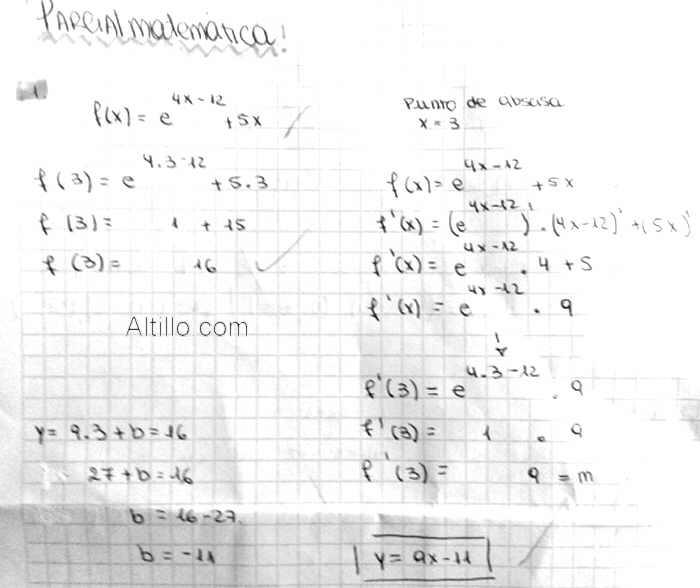 PARCIAL matemática!
1.
f(x) = e^{4x-12} + 5x
f(3) = e^{4.3-12} + 5.3
f(3) = 1 + 15
f(3) = 16
Altillo com
y = 9.3 + b = 16
27 + b = 16
b = 16 - 27
b = -11
Punto de absisa
x = 3
f(x) = e^{4x-12} + 5x
f'(x) = (e^{4x-12})' . (4x-12)' + (5x)'
f'(x) = e^{4x-12} . 4 + 5
f'(x) = e^{4x-12} . 9
f'(3) = e^{4.3-12} . 9
f'(3) = 1 . 9
f'(3) = 9 = m
y = 9x - 11